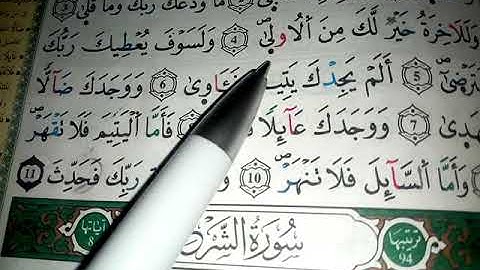 مَا وَدَّعَكَ رَبُّكَ وَمَا قَلَىٰ ③
وَلَلْآخِرَةُ خَيْرٌ لَّكَ مِنَ الْأُولَىٰ ④ وَلَسَوْفَ يُعْطِيكَ رَبُّكَ
فَتَرْضَىٰ ⑤ أَلَمْ يَجِدْكَ يَتِيمًا فَـَٔاوَىٰ ⑥ وَوَجَدَكَ ضَآلًّا
فَهَدَىٰ ⑦ وَوَجَدَكَ عَآئِلًا فَأَمَّا الْيَتِيمَ فَلَا تَقْهَرْ
وَأَمَّا السَّآئِلَ فَلَا تَنْهَرْ ⑩ رَبِّكَ فَحَدِّثْ ⑪
ترتيبها 94 سُورَةُ الشَّرْحِ آياتها 8